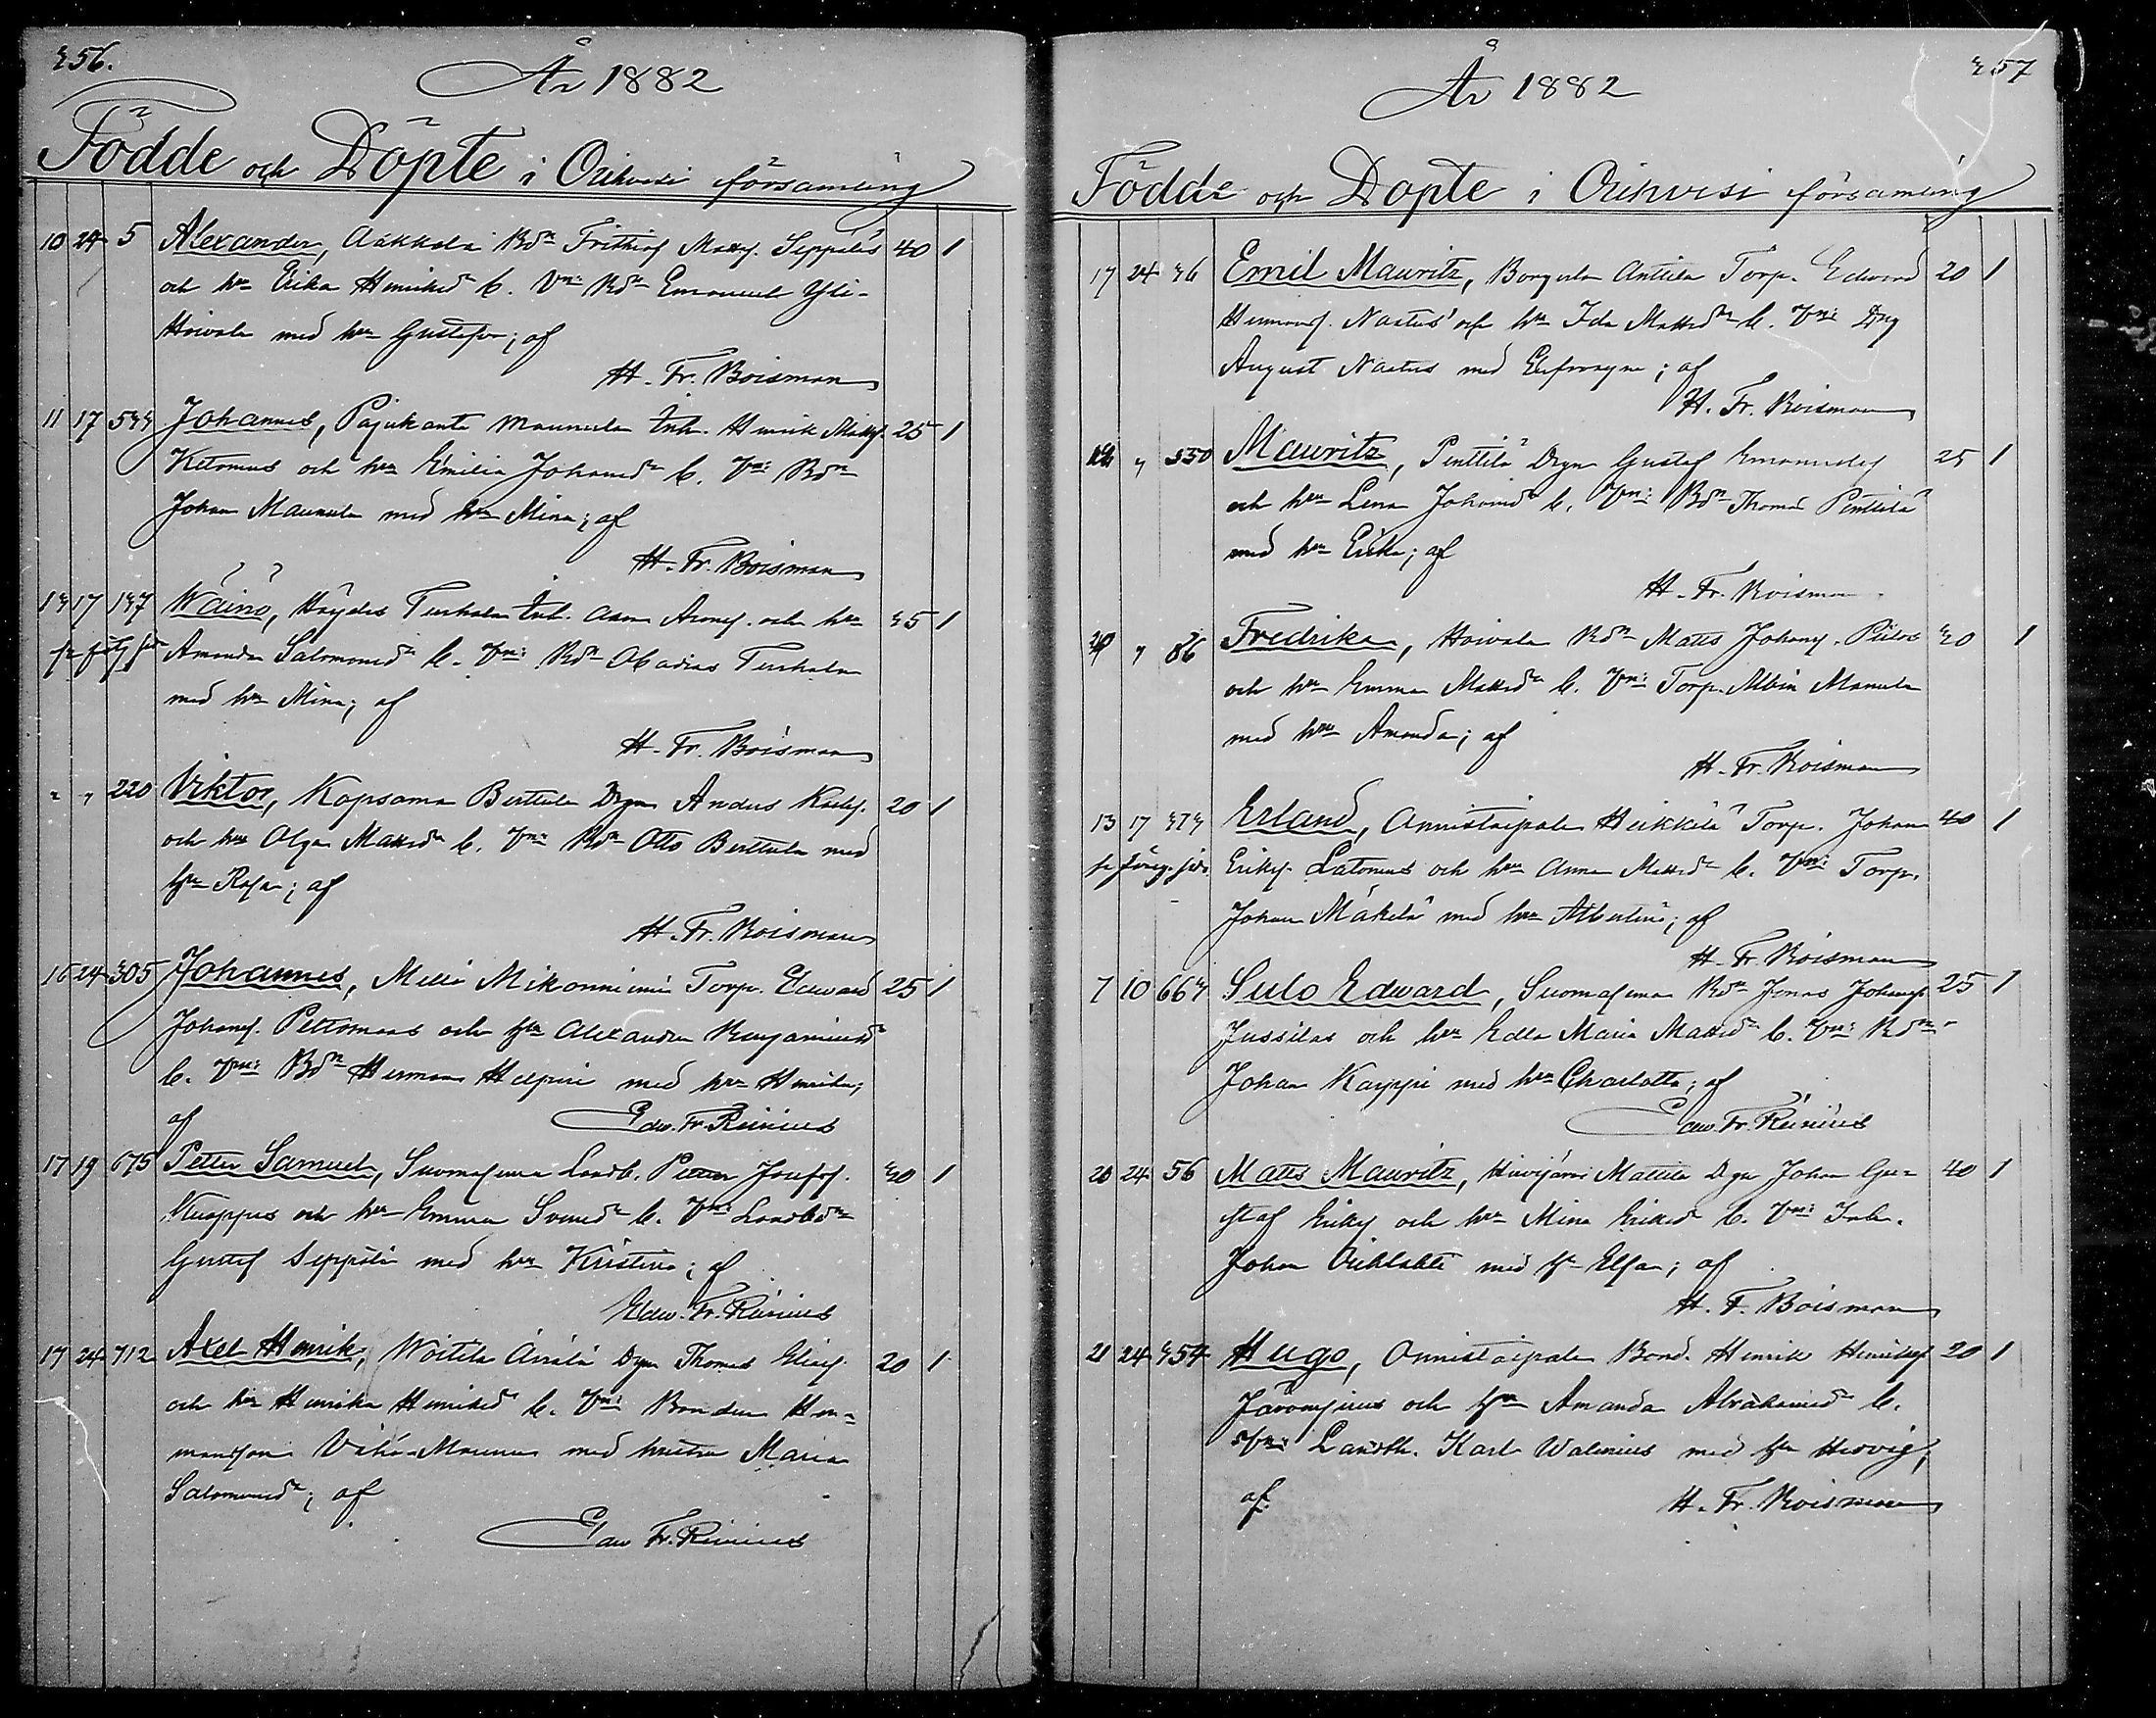 356.
År 1882
Födde och Döpte i Orihvesi församling
10 24 5 Alexander, Aakkola Bdn Frithiof Matts. Seppäläs 40 1
och hu Erika Henriksdr C. Vn: Bdn Emanuel Yli-
Hoivala med hu Gustafva; af
H. Fr. Boisman
11 17 533 Johannes, Pajukanta Maunula Inh. Henrik Matts. 25 1
Ketomus och hu Emilia Johansdr C. Vn: Bdn
Johan Maunula med hu Mina; af
H. Fr. Boisman
13 17 137 Wäinö, Turkala Inh. och hu 35 1
Amanda Salomonsdr C. Vn: Bdn Abadias Turkala
med hu Mina; af
H. Fr. Boisman
" " 220 Viktor, Kopsamo Berttula Drgn Anders Karls. 20 1
och hu Olga Mattsdr C. Vn: Bdn Otto Berttula med
hu Rosa; af
H. Fr. Boisman
16 24 305 Johannes, Torp. Edvard 25 1
Johans. och hu Alexandra Benjaminsdr
C. Vn: Bdn Herman med hu Henrika;
af Edw. Fr. Reinius
17 19 675 Petter Samuel, Suomasema Landb. Petter Josefs. 30 1
och hu Emma C. Vn: Landbdn
Gustaf Seppälä med hu Kristina; af
Edw. Fr. Reinius
17 24 712 Axel Henrik, Woitila Drgn Thomas Elias. 20 1
och hu Henrika Henriksdr C. Vn: Bonden Her-
mansson med hustru Maria
Salomonsdr; af
Edw Fr. Reinius
357
År 1882
Födde och Döpte i Orihvesi församling
17 24 36 Emil Mauritz, Anttila Torp. Edvard 20 1
Hermans. Nastus och hu Ida Mattsdr C. Vn: Drg
August Nastus med Eufrosyne; af
H. Fr. Boisman
" 550 Mauritz, Penttilä Drgn Gustaf Emanuels 25 1
och hu Lena Johansdr C. Vn: Bdn Thomas Penttilä
med hu Erika; af
H. Fr. Boisman
" 86 Fredrika, Hoivala Bdn Matts Johans. 30 1
och hu Emma Mattsdr C. Vn: Torp. Albin Manula
med hu Amanda; af
H. Fr. Boisman
13 17 373 Erland, Onnistaipale Heikkilä Torp. Johan 40 1
se föreg. sida. Eriks. Latomus och hu Anna Mattsdr C. Vn: Torp.
Johan Mäkelä med hu Albertina; af
H. Fr. Boisman
7 10 663 Sulo Edvard, Suomasema Bdn Jonas Johans. 25 1
Jussilas och hu Edla Maria Mattsdr C. Vn: Bdn
Johan Karppi med hu Charlotta; af
Edw. Fr. Reinius
20 24 56 Matts Mauritz, Hirsjärvi Mattila Drgn Johan Gu-
40 1
staf Eriks och hu Mina Eriksdr C. Vn: Inh.
Johan med hu Elsa; af
H. F. Boisman
21 24 354 Hugo, Onnistaipale Bond. Henrik Henriks 20 1
och hu Amanda Abrahamsdr C.
Vn: Landb. Karl Walenius med hu Hedvig;
af H. Fr. Boisman